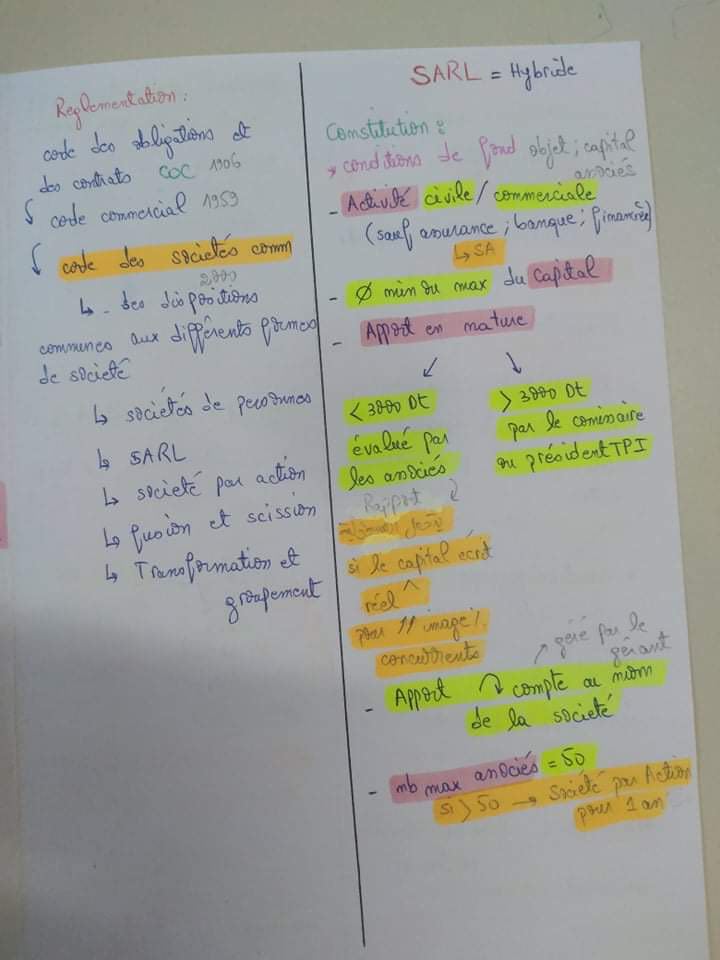 Reglementation :
code des obligations et
des contrats COC 1906
↓ code commercial 1959
↓ code des societés comm
2000
↳ - des dispositions
communes aux différents formes
de societé
↳ sociétés de personnes
↳ SARL
↳ societé par action
↳ fusion et scission
↳ Transformation et
groupement
SARL = Hybride
Constitution :
→ conditions de fond objet ; capital
associés
- Activité civile / commerciale
(sauf assurance ; banque ; financière)
↳ SA
- Ø min ou max du capital
- Apport en nature
↙ ↘
< 3000 Dt
évalué par
les associés
> 3000 Dt
par le comissaire
ou président TPI
Rapport
si le capital écrit
réel
pour 11 image /.
concurrents
- Apport ↷ compte au nom
de la societé
↗ géré par le
gérant
- nb max associés = 50
si > 50 → Societé par Action
pour 1 an